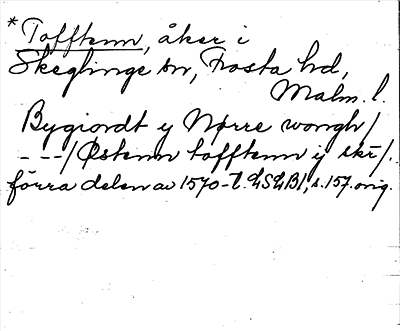 * Tofftenn, åker i
Skeglinge sn, Frosta hd,
Malm. l.
Bygiordt y Nørre wongh/
---/ Østenn tofftenn ij skr/.
förra delen av 1570-t. LSLB1, s. 157. orig.